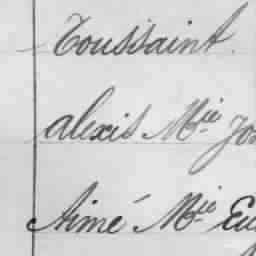 Toussaint.
alexis Mie
Aimé Mie